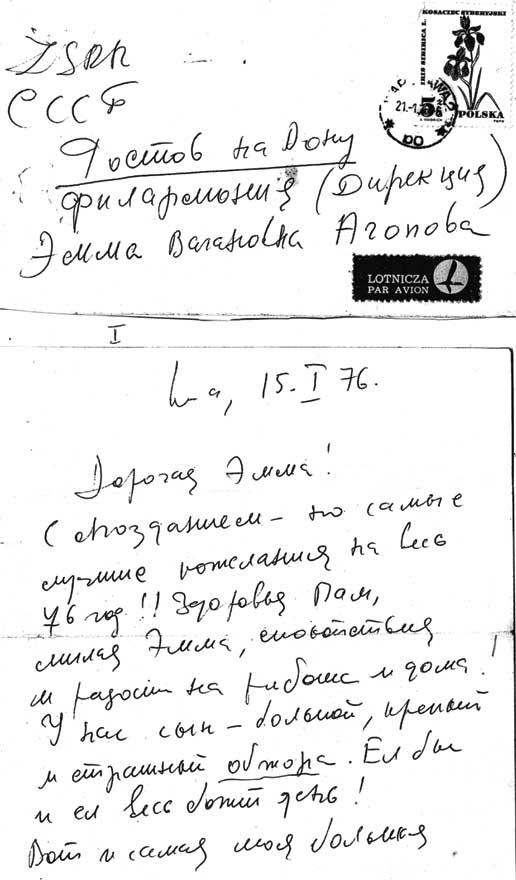 KOSACIEC SYBERYJSKI
IRIS SIBIRICA L.
5
POLSKA
21.-1.
ŻSRR
СССР
Ростов на Дону
филармония (Дирекция)
Эмма Вагановна Агопова
LOTNICZA
PAR AVION
I
W-a, 15. I 76.
Дорогая Эмма!
С опозданием - но самые
лучшие пожелания на весь
76 год!! Здоровья Вам,
милая Эмма, спокойствия
и радости на работе и дома!
У нас сын - большой, крепкий
и страшный обжора. Ел бы
и ел весь божий день!
Вот и самая моя большая